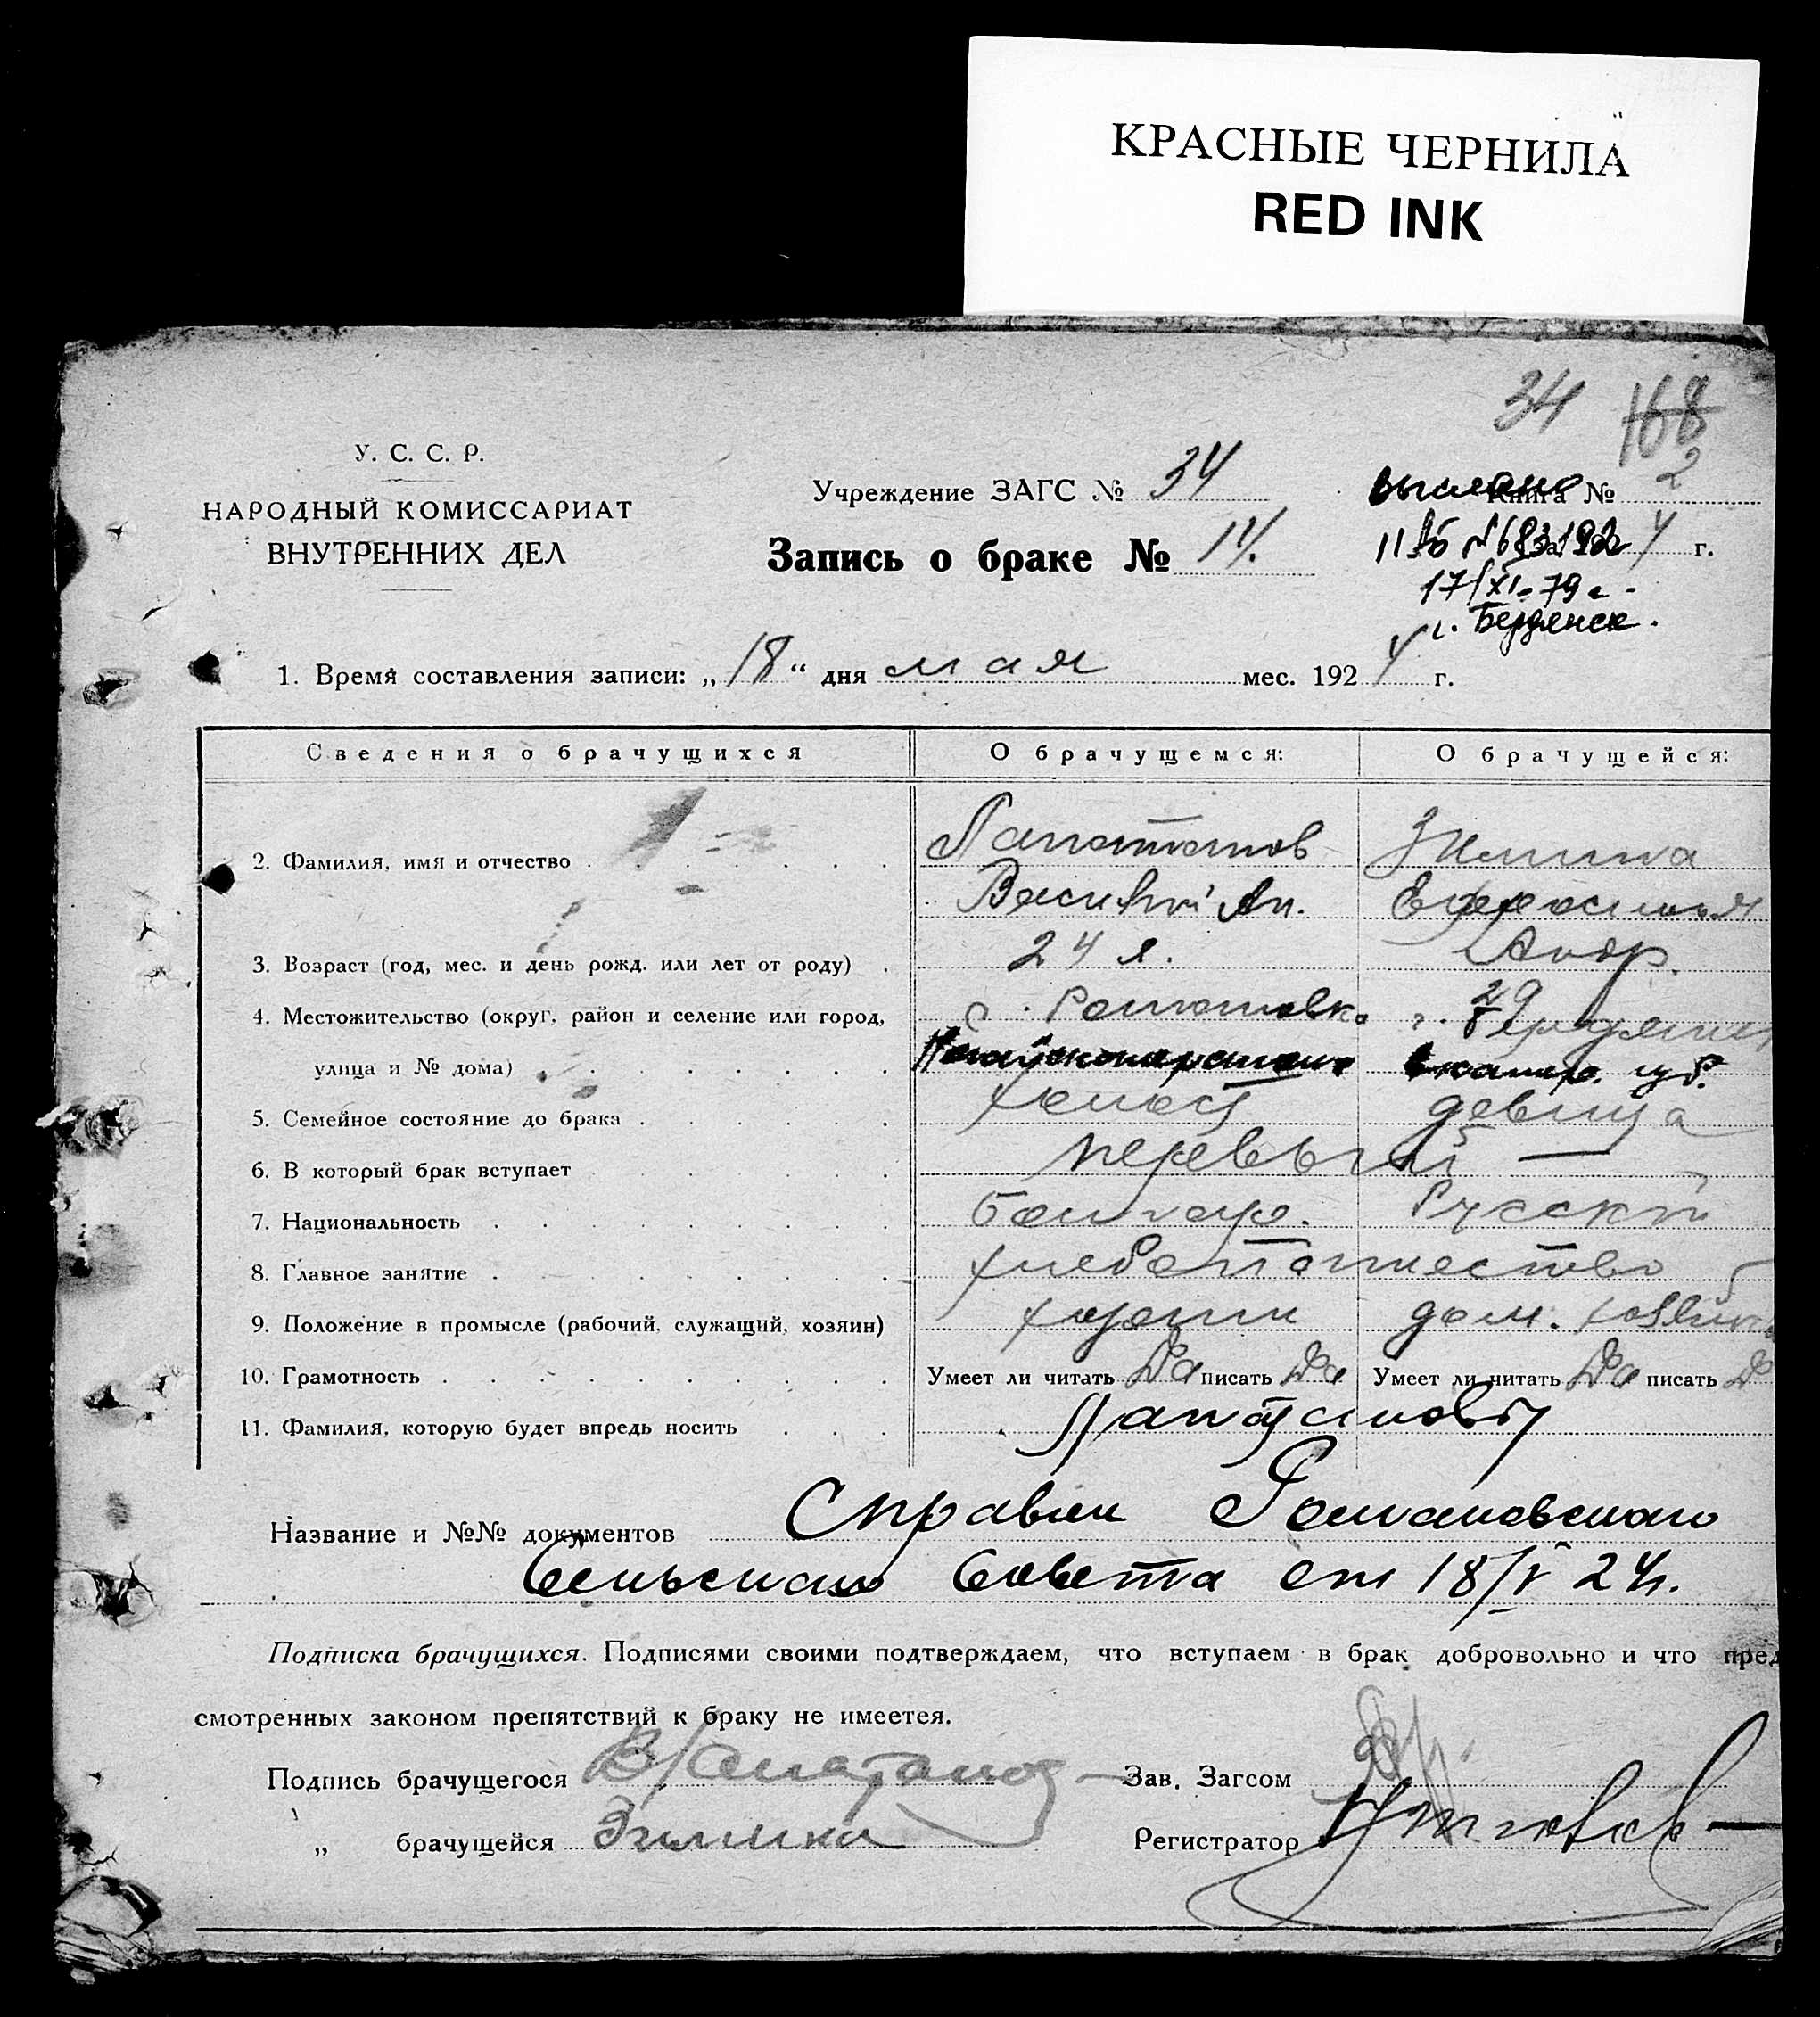 КРАСНЫЕ ЧЕРНИЛА
RED INK
34 168
У. С. С. Р.
НАРОДНЫЙ КОМИССАРИАТ
ВНУТРЕННИХ ДЕЛ
Учреждение ЗАГС № 34
Запись о браке № 14.
Книга № 2
за 1924 г.
выслано
№ 683
17/XI-79 г.
г. Бердянск.
1. Время составления записи: „18“ дня мая мес. 1924 г.
Сведения о брачущихся О брачущемся: О брачущейся:
2. Фамилия, имя и отчество
Василий Ан. Ефросинья
Андр.
3. Возраст (год, мес. и день рожд. или лет от роду) 24 л. 29
4. Местожительство (округ, район и селение или город, с. Романовка г. Бердянск
улица и № дома) губ.
5. Семейное состояние до брака холост девица
6. В который брак вступает первый
7. Национальность болгар. Русский
8. Главное занятие хлебопашество
9. Положение в промысле (рабочий, служащий, хозяин) хозяин дом. хозяйка
10. Грамотность Умеет ли читать Да писать Да Умеет ли читать Да писать Да
11. Фамилия, которую будет впредь носить
Название и №№ документов Справки Романовского
Сельского Совета от 18/V 24 г.
Подписка брачущихся. Подписями своими подтверждаем, что вступаем в брак добровольно и что пред
смотренных законом препятствий к браку не имеется.
Подпись брачущегося Зав. Загсом
„ брачущейся Регистратор